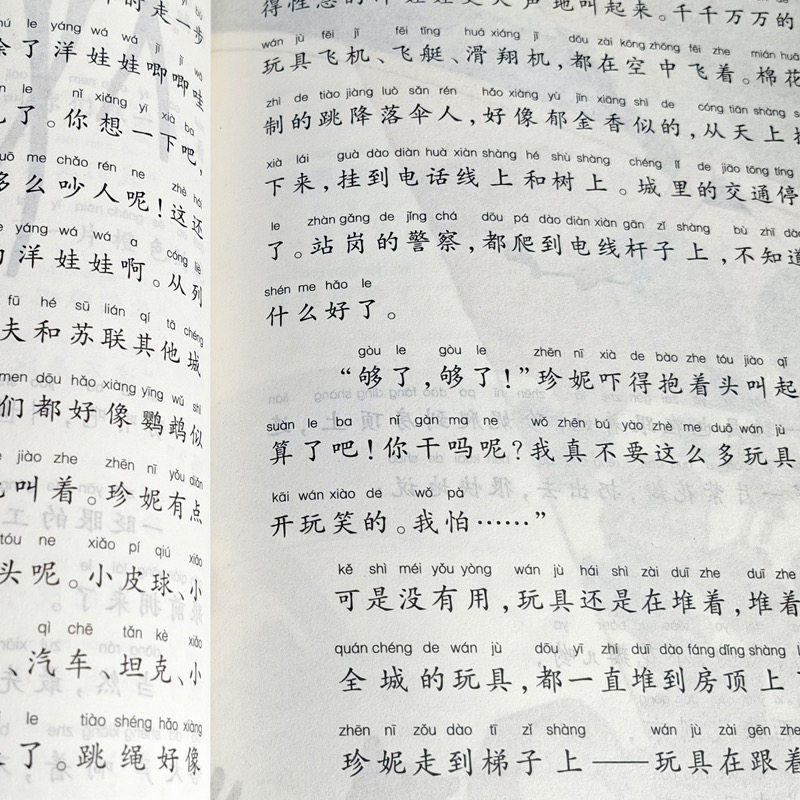 时走一步
le yáng wá wa jī jī
了洋娃娃唧唧哇
le nǐ xiǎng yí xià ba
了。你想一下吧,
me chǎo rén ne zhè hái
么吵人呢!这还
yáng wá wa a cóng liè
洋娃娃啊。从列
fū hé sū lián qí tā chéng
夫和苏联其他城
men dōu hǎo xiàng yīng wǔ shì
们都好像鹦鹉似
jiào zhe zhēn nī yǒu diǎn
叫着。珍妮有点
tóu ne xiǎo pí qiú xiǎo
头呢。小皮球、小
qì chē tǎn kè xiǎo
、汽车、坦克、小
le tiào shéng hǎo xiàng
了。跳绳好像
地叫起来。千千万万的
wán jù fēi jī fēi tǐng huá xiáng jī dōu zài kōng zhōng fēi zhe mián huā
玩具飞机、飞艇、滑翔机,都在空中飞着。棉花
zhì de tiào jiàng luò sǎn rén hǎo xiàng yù jīn xiāng shì de cóng tiān shàng
制的跳降落伞人,好像郁金香似的,从天上
xià lái guà dào diàn huà xiàn shàng hé shù shàng chéng lǐ de jiāo tōng tíng
下来,挂到电话线上和树上。城里的交通停
le zhàn gǎng de jǐng chá dōu pá dào diàn xiàn gān zi shàng bù zhī dào
了。站岗的警察,都爬到电线杆子上,不知道
shén me hǎo le
什么好了。
gòu le gòu le zhēn nī xià de bào zhe tóu jiào qǐ
“够了,够了!”珍妮吓得抱着头叫起
suàn le ba nǐ gàn má ne wǒ zhēn bú yào zhè me duō wán jù
算了吧!你干吗呢?我真不要这么多玩具
kāi wán xiào de wǒ pà
开玩笑的。我怕……”
kě shì méi yǒu yòng wán jù hái shì zài duī zhe duī zhe
可是没有用,玩具还是在堆着,堆着
quán chéng de wán jù dōu yì zhí duī dào fáng dǐng shàng
全城的玩具,都一直堆到房顶上
zhēn nī zǒu dào tī zi shàng wán jù zài gēn zhe
珍妮走到梯子上——玩具在跟着